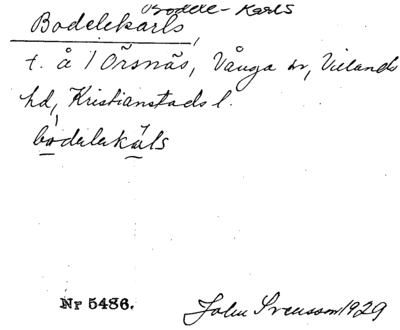 Bodele-Karls
Bodelekarls,
t. å 1 Örsnäs, Vånga sn, Villands
hd, Kristianstads l.
bodelekals
Nr 5486.
John Svensson 1929